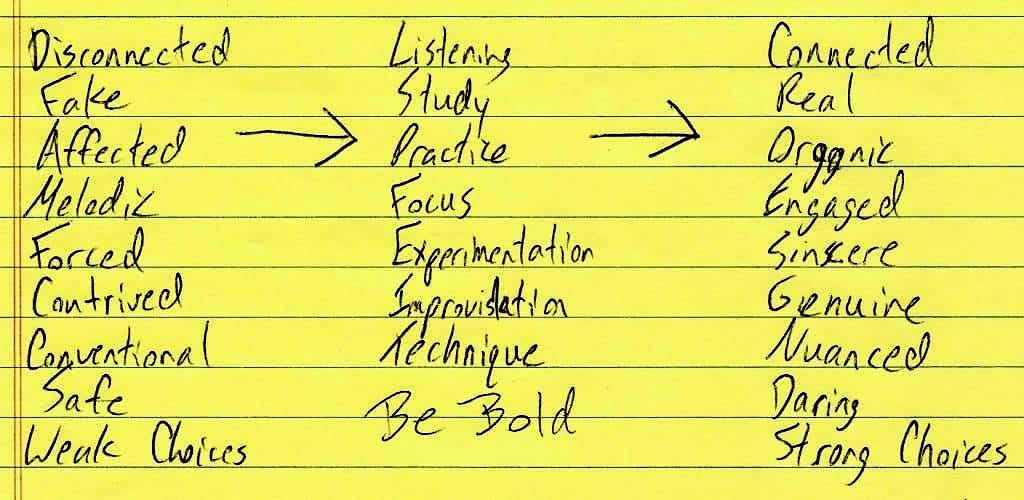 Disconnected Listening Connected
Fake Study Real
Affected → Practice → Organic
Melodic Focus Engaged
Forced Experimentation Sincere
Contrived Improvisation Genuine
Conventional Technique Nuanced
Safe Be Bold Daring
Weak Choices Strong Choices